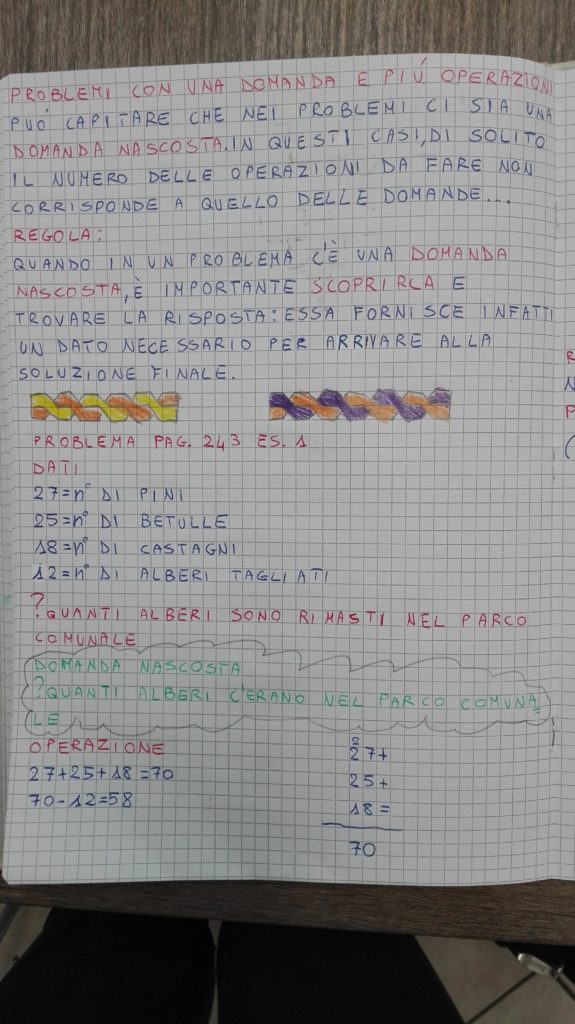 PROBLEMI CON UNA DOMANDA E PIÚ OPERAZIONI
PUÓ CAPITARE CHE NEI PROBLEMI CI SIA UNA
DOMANDA NASCOSTA. IN QUESTI CASI, DI SOLITO
IL NUMERO DELLE OPERAZIONI DA FARE NON
CORRISPONDE A QUELLO DELLE DOMANDE...
REGOLA:
QUANDO IN UN PROBLEMA C'È UNA DOMANDA
NASCOSTA, È IMPORTANTE SCOPRIRLA E
TROVARE LA RISPOSTA: ESSA FORNISCE INFATTI
UN DATO NECESSARIO PER ARRIVARE ALLA
SOLUZIONE FINALE.
PROBLEMA PAG. 243 ES. 1
DATI
27=n° DI PINI
25=n° DI BETULLE
18=n° DI CASTAGNI
12=n° DI ALBERI TAGLIATI
?QUANTI ALBERI SONO RIMASTI NEL PARCO
COMUNALE
DOMANDA NASCOSTA
?QUANTI ALBERI C'ERANO NEL PARCO COMUNA=
LE
OPERAZIONE
27+25+18=70
70-12=58
2
27+
25+
18=
70